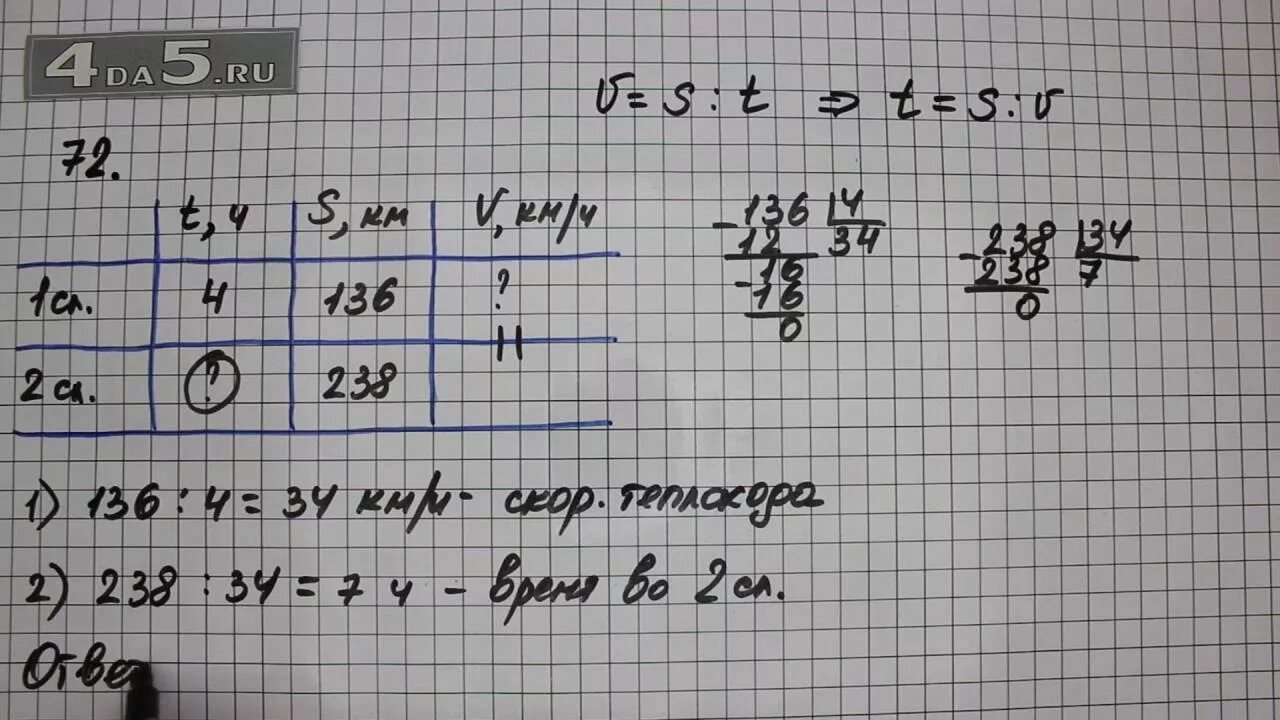 4DA5.RU
V = S : t ⇒ t = S : V
72.
t, ч S, км V, км/ч
1 сл. 4 136 ?
2 сл. ? 238
136 4
12 34
16
16
0
238 34
238 7
0
1) 136 : 4 = 34 км/ч - скор. теплохода
2) 238 : 34 = 7 ч - время во 2 сл.
Отве